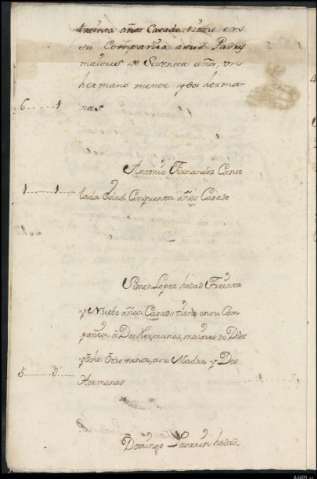 treinta años Casado tiene en
su Compañia a sus Padres
maiores de Sesenta años, un
hermano menor y dos herma-
6 1 nas
Antonio Fernandez Cana
1 1 lada Edad Cinquenta años Casado
Simon Lopez hedad Treinta
y Nuebe años Casado tiene en su Com
pañia a Dos Hermanos, maiores de Diez
y Seis a su Madre y Dos
5 3 Hermanas
Domingo hedad